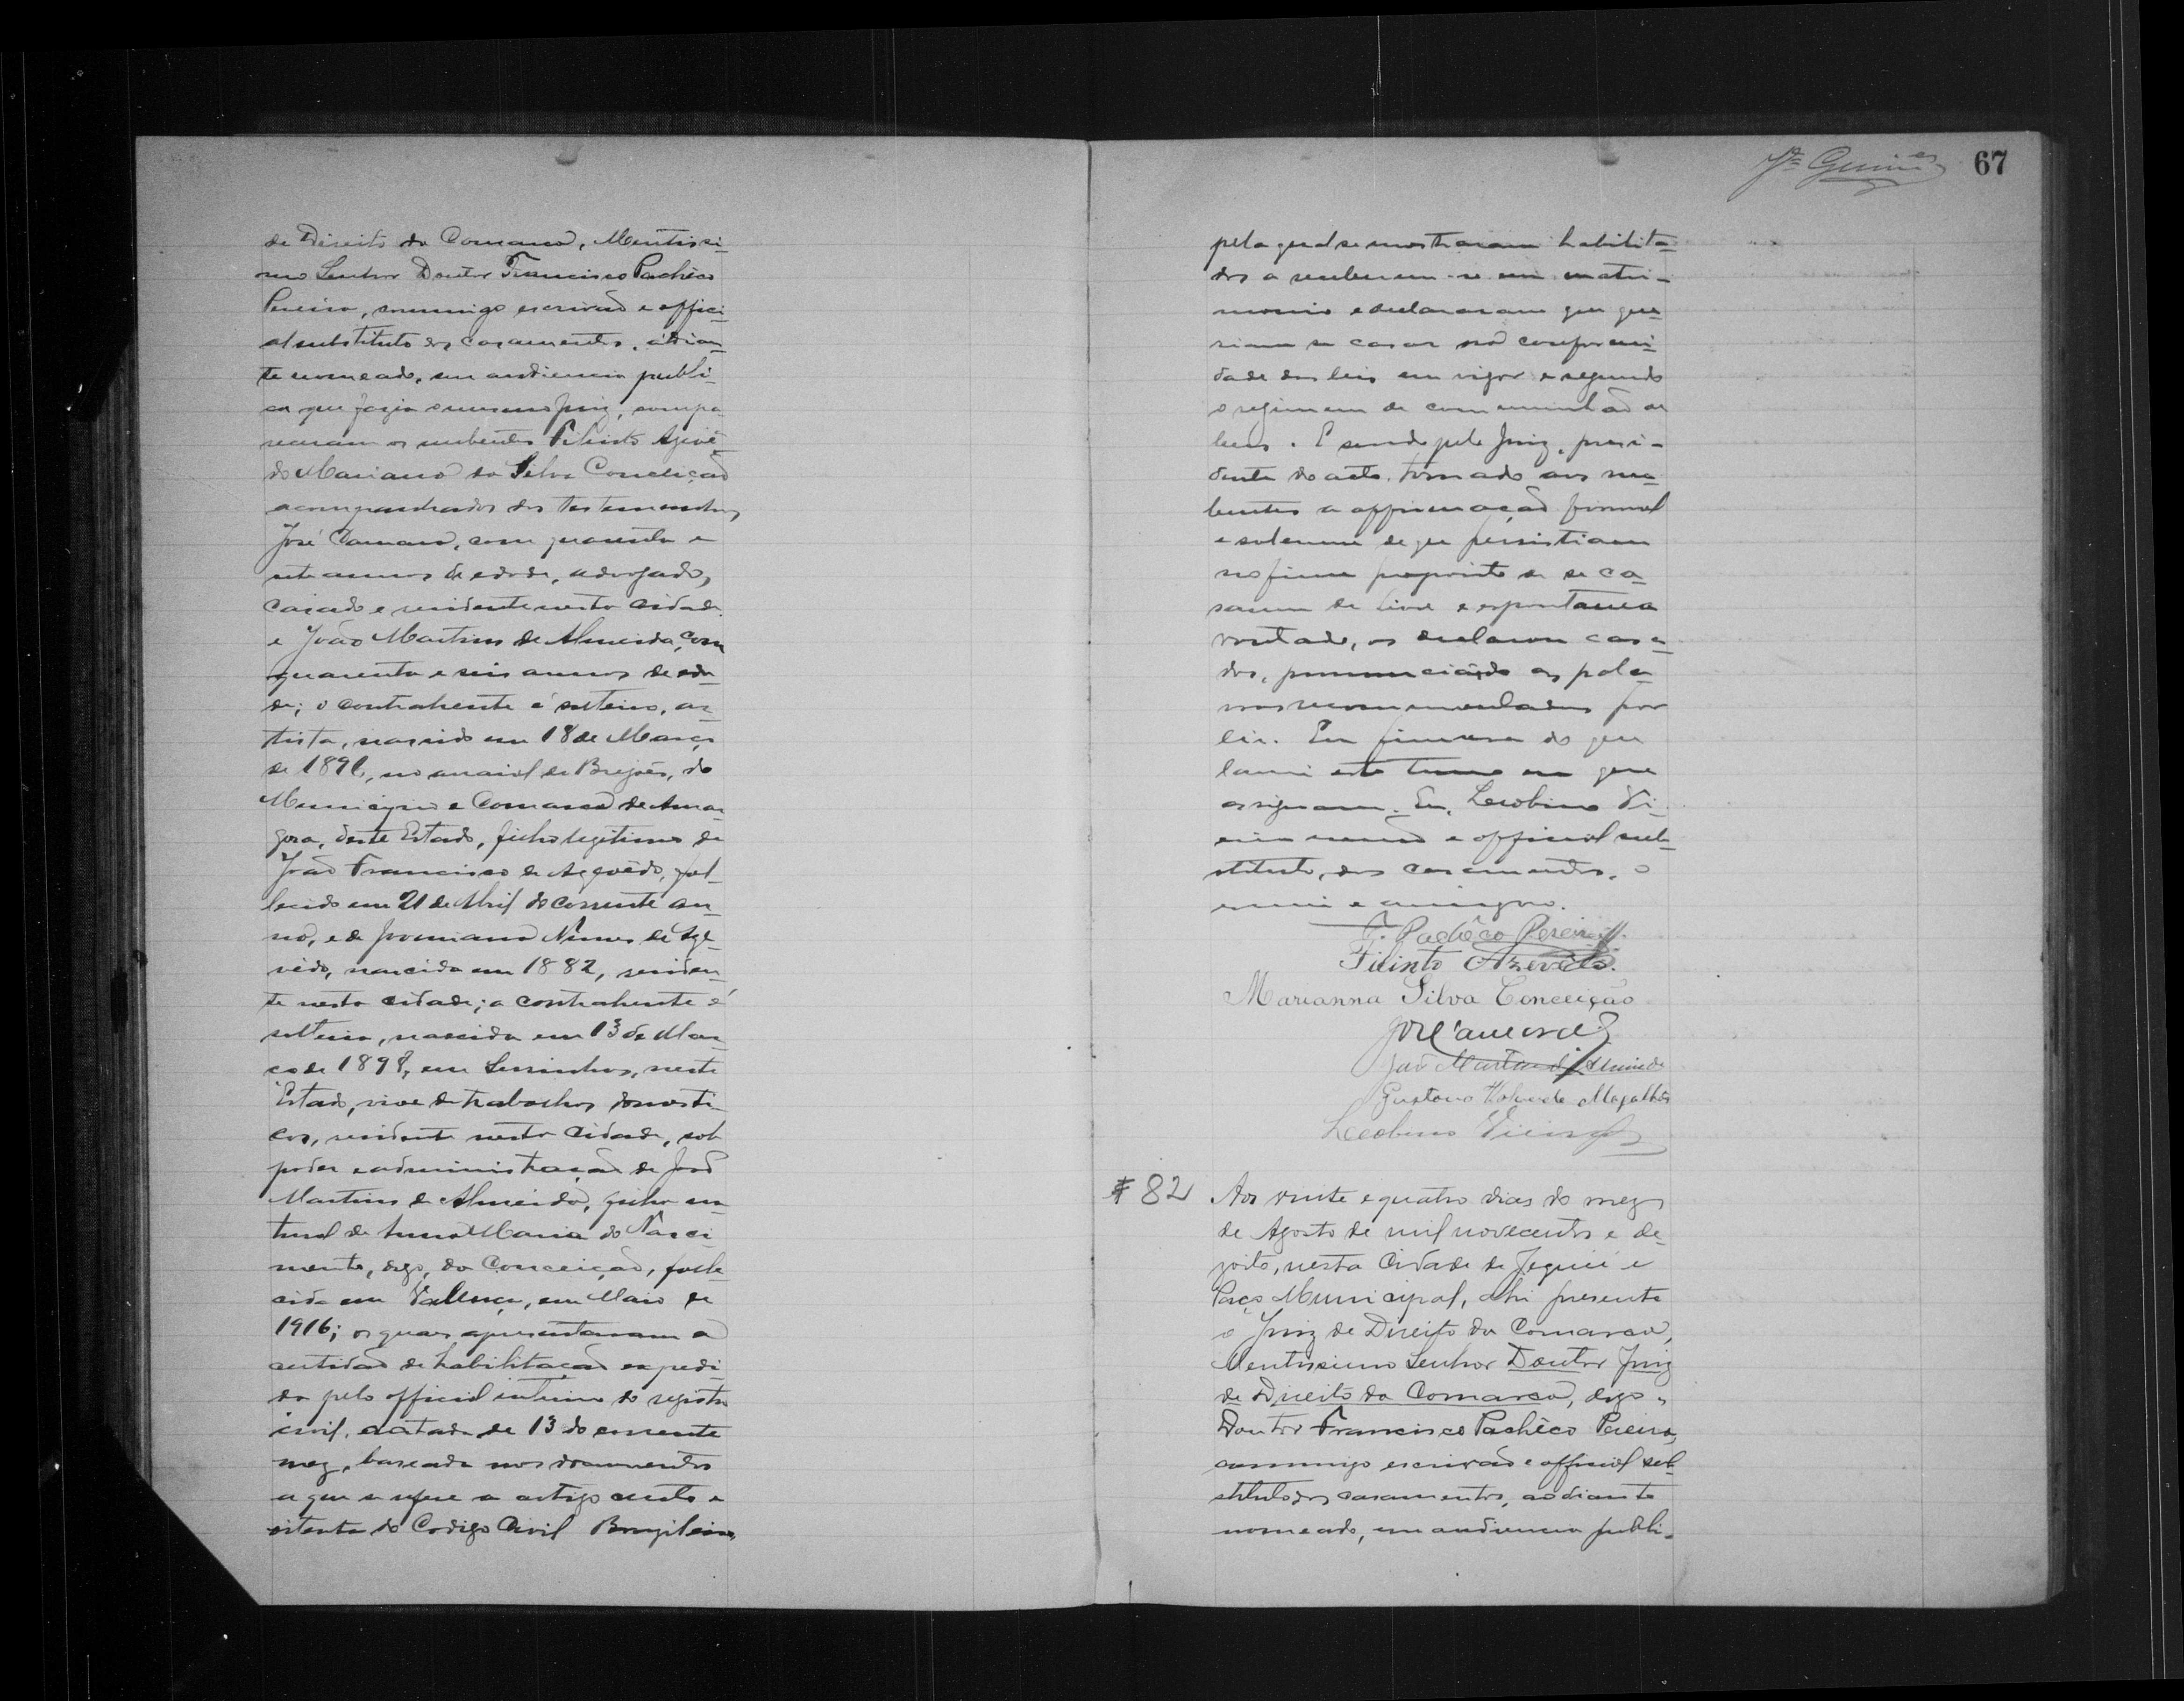 de Direito da Comarca, Meritissi-
mo Senhor Doutor Francisco Pachêco
Pereira, commigo escrivão e offici-
al substituto dos casamentos, adian-
te nomeado, em audiencia publi-
ca que fazia o mesmo Juiz, compa-
receram os nubentes Filinto Azevê-
do Mariana da Silva Conceição
acompanhados das testemunhas
José Camara, com quarenta e
sete annos de edade, advogado,
casado e residente nesta cidade
e João Martins de Almeida, com
quarenta e seis annos de eda-
de; o contrahente é solteiro, ar-
tista, nascido em 18 de Março
de 1891, no arraial de Brejões, do
Municipio e Comarca de Amar-
gosa, deste Estado, filho legitimo de
João Francisco de Azevêdo, fal-
lecido em 21 de Abril do corrente an-
no, e de Nunes de Aze-
vêdo, nascida em 1882, residen-
te nesta cidade; a contrahente é
solteira, nascida em 13 de Mar-
ço de 1898, em Serrinha, neste
Estado, vive de trabalhos domesti-
cos, residente nesta cidade, sob
poder e administração de João
Martins de Almeida, filha na-
tural de Anna Maria do Nasci-
mento, digo, da Conceição, falle-
cida em Vallença, em Maio de
1916; os quaes apresentaram a
certidão de habilitação expedi-
da pelo official interino do registro
civil, datada de 13 do corrente
mez, baseada nos documentos
a que se refere o artigo cento e
oitenta do Codigo Civil Brazileiro,
Guim.es 67
pela qual se mostraram habilita-
dos a receberem-se em matri-
monio e declararam que que-
riam se casar na conformi-
dade das leis em vigor e segundo
o regimem de communhão de
bens. E sendo pelo Juiz, presi-
dente do acto, tomado aos nu-
bentes a affirmação formal
e solemne de que persistiam
no firme proposito de se ca-
sarem de livre e espontanea
vontade, os declarou casa-
dos, pronunciando as pala-
vras recommendadas por
lei. Em firmeza do que
lavrei este termo em que
assignam. Eu, Leobino Vi-
eira escrivão e official sub-
stituto, dos casamentos, o
escrevi e assigno.
F. Pachêco Pereira
Filinto Azevêdo.
Marianna Silva Conceição
José Camara
João Martins d'Almeida
Gustavo Magalhães
Leobino Vieira
# 82 Aos vinte e quatro dias do mez
de Agosto de mil novecentos e de-
zoito, nesta Cidade de Jequié e
Paço Municipal, ahi presente
o Juiz de Direito da Comarca,
Meritissimo Senhor Doutor Juiz
de Direito da Comarca, digo,
Doutor Francisco Pachêco Pereira,
commigo escrivão e official sub-
stituto dos casamentos, ao diante
nomeado, em audiencia publi-